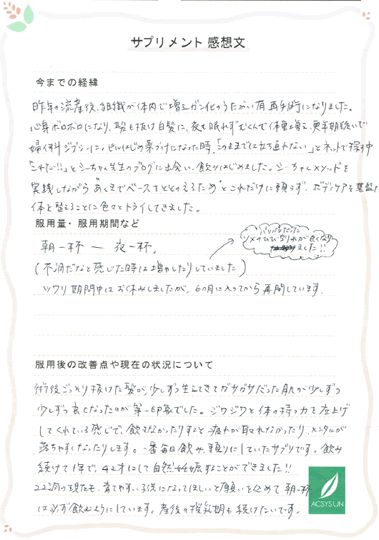 サプリメント 感想文
今までの経緯
昨年の流産後、組織が体内で増えガン化のうたがい有 再手術になりました。
心身ボロボロになり、髪も抜け白髪に、夜も眠れずむくんで体重増え、更年期
婦人科
「このままでは立ち直れない」とネットで
「これだ!!」と ちゃん先生のブログに出会い、飲みはじめました。
実践しながら "あくまでベースをととのえるため" とこれだけに頼らず、ボディケアを
体を整えることに色々とトライしてきました。
服用量・服用期間など
朝一杯 ― 夜一杯。
(不調だなと感じた時は増やしたりしていました)
バリバリだった
ツメのひび割れが良くなりました!!
ツワリ期間中はお休みしましたが、6ヵ月に入ってから再開しています。
服用後の改善点や現在の状況について
術後ごっそり抜けた髪が少しずつ生えてきてガサガサだった肌が少しずつ
少しずつ良くなったのが第一印象でした。ジワジワと体の持つ力を底上げ
してくれている感じで、飲まなかったりすると疲れが取れなかったり、メンタルが
落ちやすくなったりします。一番毎日飲み、頼りにしていたサプリです。飲み
続けて1年で、42才にして自然妊娠することができました!!
22週の現在も、育てやすい子供になってほしいと願いを込めて 朝一杯
は必ず飲むようにしています。産後の授乳期も続けたいです。
ACSYS UN